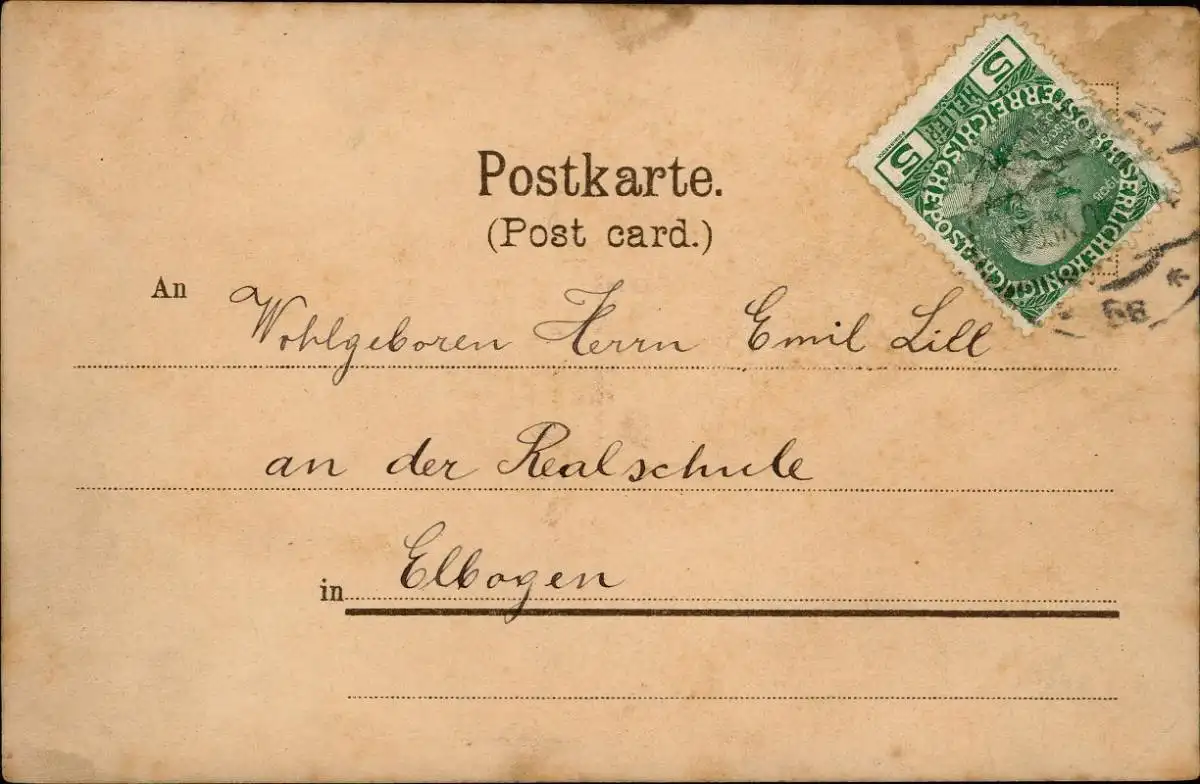 Postkarte.
(Post card.)
5 HELLER 5
KAISERLICHE KÖNIGLICHE ÖSTERREICHISCHE POST
1908
An Wohlgeboren Herrn Emil Lill
an der Realschule
in Elbogen